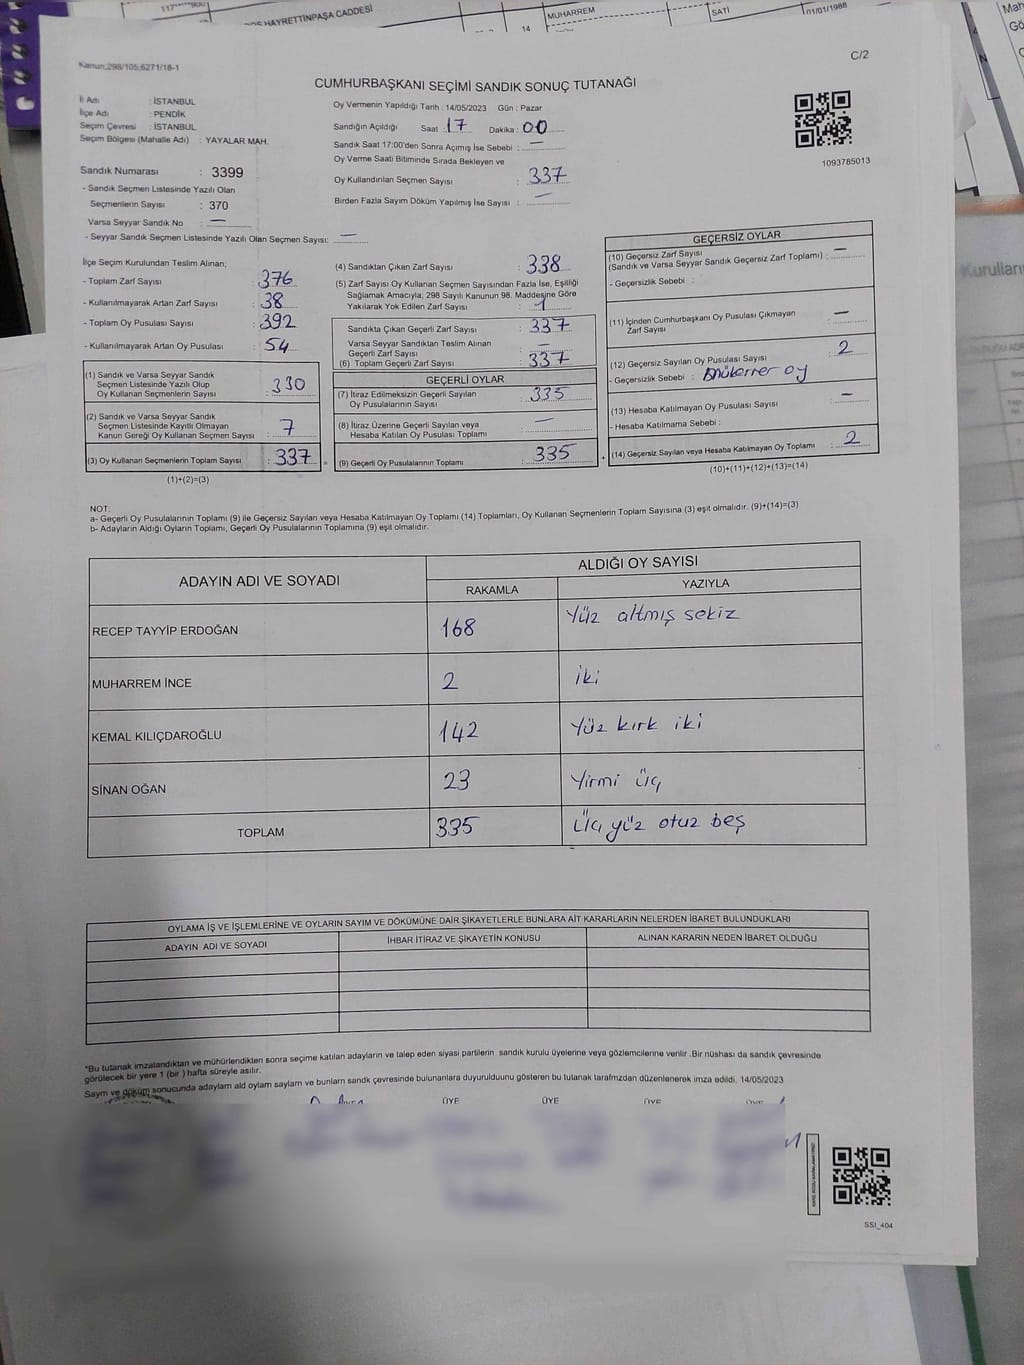 HAYRETTİNPAŞA CADDESİ
14
MUHARREM
SATI
01/01/1988
C/2
Kanun;298/105;6271/18-1
CUMHURBAŞKANI SEÇİMİ SANDIK SONUÇ TUTANAĞI
İl Adı : İSTANBUL
İlçe Adı : PENDİK
Seçim Çevresi : İSTANBUL
Seçim Bölgesi (Mahalle Adı) : YAYALAR MAH.
Sandık Numarası : 3399
- Sandık Seçmen Listesinde Yazılı Olan
Seçmenlerin Sayısı : 370
Varsa Seyyar Sandık No : —
- Seyyar Sandık Seçmen Listesinde Yazılı Olan Seçmen Sayısı: —
Oy Vermenin Yapıldığı Tarih : 14/05/2023 Gün : Pazar
Sandığın Açıldığı Saat : 17 Dakika : 00
Sandık Saat 17:00'den Sonra Açımış İse Sebebi : —
Oy Verme Saati Bitiminde Sırada Bekleyen ve
Oy Kullandırılan Seçmen Sayısı : 337
Birden Fazla Sayım Döküm Yapılmış İse Sayısı : —
1093785013
İlçe Seçim Kurulundan Teslim Alınan;
- Toplam Zarf Sayısı : 376
- Kullanılmayarak Artan Zarf Sayısı : 38
- Toplam Oy Pusulası Sayısı : 392
- Kullanılmayarak Artan Oy Pusulası : 54
(1) Sandık ve Varsa Seyyar Sandık
Seçmen Listesinde Yazılı Olup
Oy Kullanan Seçmenlerin Sayısı : 330
(2) Sandık ve Varsa Seyyar Sandık
Seçmen Listesinde Kayıtlı Olmayan
Kanun Gereği Oy Kullanan Seçmen Sayısı : 7
(3) Oy Kullanan Seçmenlerin Toplam Sayısı : 337
(1)+(2)=(3)
(4) Sandıktan Çıkan Zarf Sayısı : 338
(5) Zarf Sayısı Oy Kullanan Seçmen Sayısından Fazla İse, Eşitliği
Sağlamak Amacıyla; 298 Sayılı Kanunun 98. Maddesine Göre
Yakılarak Yok Edilen Zarf Sayısı : 1
Sandıkta Çıkan Geçerli Zarf Sayısı : 337
Varsa Seyyar Sandıktan Teslim Alınan
Geçerli Zarf Sayısı : —
(6) Toplam Geçerli Zarf Sayısı : 337
GEÇERLİ OYLAR
(7) İtiraz Edilmeksizin Geçerli Sayılan
Oy Pusulalarının Sayısı : 335
(8) İtiraz Üzerine Geçerli Sayılan veya
Hesaba Katılan Oy Pusulası Toplamı : —
(9) Geçerli Oy Pusulalarının Toplamı : 335
GEÇERSİZ OYLAR
(10) Geçersiz Zarf Sayısı
(Sandık ve Varsa Seyyar Sandık Geçersiz Zarf Toplamı) : —
- Geçersizlik Sebebi :
(11) İçinden Cumhurbaşkanı Oy Pusulası Çıkmayan
Zarf Sayısı : —
(12) Geçersiz Sayılan Oy Pusulası Sayısı : 2
- Geçersizlik Sebebi : mükerrer oy
(13) Hesaba Katılmayan Oy Pusulası Sayısı : —
- Hesaba Katılmama Sebebi :
(14) Geçersiz Sayılan veya Hesaba Katılmayan Oy Toplamı : 2
(10)+(11)+(12)+(13)=(14)
NOT:
a- Geçerli Oy Pusulalarının Toplamı (9) ile Geçersiz Sayılan veya Hesaba Katılmayan Oy Toplamı (14) Toplamları, Oy Kullanan Seçmenlerin Toplam Sayısına (3) eşit olmalıdır. (9)+(14)=(3)
b- Adayların Aldığı Oyların Toplamı, Geçerli Oy Pusulalarının Toplamına (9) eşit olmalıdır.
ADAYIN ADI VE SOYADI
ALDIĞI OY SAYISI
RAKAMLA YAZIYLA
RECEP TAYYİP ERDOĞAN 168 Yüz altmış sekiz
MUHARREM İNCE 2 iki
KEMAL KILIÇDAROĞLU 142 Yüz kırk iki
SİNAN OĞAN 23 Yirmi üç
TOPLAM 335 Üç yüz otuz beş
OYLAMA İŞ VE İŞLEMLERİNE VE OYLARIN SAYIM VE DÖKÜMÜNE DAİR ŞİKAYETLERLE BUNLARA AİT KARARLARIN NELERDEN İBARET BULUNDUKLARI
ADAYIN ADI VE SOYADI İHBAR İTİRAZ VE ŞİKAYETİN KONUSU ALINAN KARARIN NEDEN İBARET OLDUĞU
*Bu tutanak imzalandıktan ve mühürlendikten sonra seçime katılan adayların ve talep eden siyasi partilerin sandık kurulu üyelerine veya gözlemcilerine verilir .Bir nüshası da sandık çevresinde
görülecek bir yere 1 (bir ) hafta süreyle asılır.
Sayım ve döküm sonucunda adayların ald oyların sayların ve bunların sandk çevresinde bulunanlara duyurulduunu gösteren bu tutanak tarafmzdan düzenlenerek imza edildi. 14/05/2023
ÜYE ÜYE ÜYE ÜYE
SSI_404
Kurulların